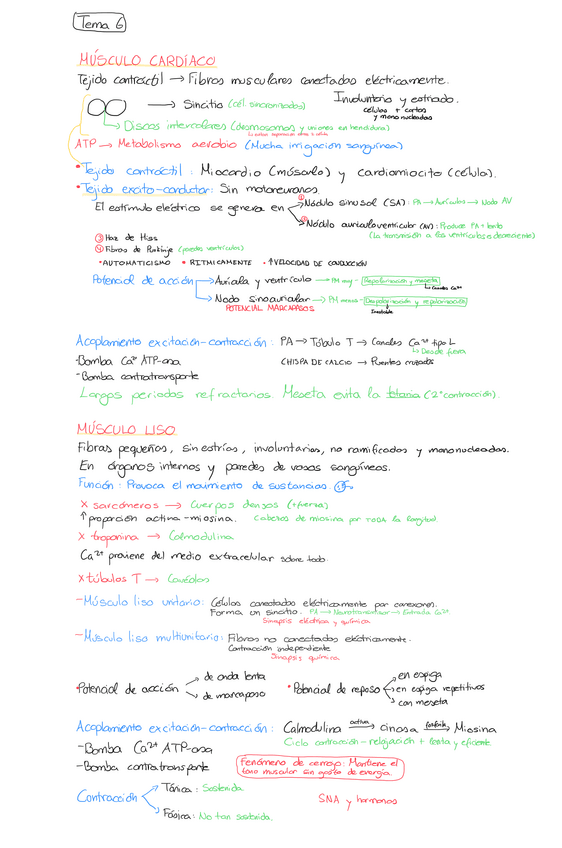 Tema 6
MÚSCULO CARDÍACO
Tejido contráctil → Fibras musculares conectadas eléctricamente.
→ Sincitio (cél. sincronizadas)
Involuntario y estriado.
células + cortas
y mononucleadas
→ Discos intercalares (desmosomas y uniones en hendidura)
ATP → Metabolismo aerobio (Mucha irrigación sanguínea)
• Tejido contráctil: Miocardio (músculo) y cardiomiocito (célula).
• Tejido excito-conductor: Sin motoneuronas.
El estímulo eléctrico se genera en
① Nódulo sinusal (SA): PA → Aurículas → Nodo AV
② Nódulo auriculoventricular (AV): Produce PA + lento
(La transmisión a los ventrículos es decreciente)
③ Haz de Hiss
④ Fibras de Purkinje (paredes ventrículos)
• AUTOMATICISMO • RITMICAMENTE • ↑VELOCIDAD DE CONDUCCIÓN
Potencial de acción
→ Aurícula y ventrículo → PM muy - Repolarización y meseta
↳ Canales Ca²⁺
→ Nodo sinoauricular → PM menos - Despolarización y repolarización
POTENCIAL MARCAPASOS
Inestable
Acoplamiento excitación-contracción: PA → Túbulo T → Canales Ca²⁺ tipo L
↳ Desde fuera
-Bomba Ca²⁺ ATP-asa
CHISPA DE CALCIO → Puentes cruzados
-Bomba contratransporte
Largos periodos refractarios. Meseta evita la tetania (2ª contracción).
MÚSCULO LISO
Fibras pequeñas, sin estrías, involuntarias, no ramificadas y mononucleadas.
En órganos internos y paredes de vasos sanguíneos.
Función: Provoca el movimiento de sustancias.
X sarcómeros → Cuerpos densos (+fuerza)
↑ proporción activa-miosina. Cabezas de miosina por TODA la longitud.
X troponina → Calmodulina
Ca²⁺ proviene del medio extracelular sobre todo.
X túbulos T → Caveólas
-Músculo liso unitario: Células conectadas eléctricamente por conexones.
Forma un sincitio. PA → Neurotransmisor → Entrada Ca²⁺.
Sinapsis eléctrica y química
-Músculo liso multiunitario: Fibras no conectadas eléctricamente.
Contracción independiente
Sinapsis química
• Potencial de acción
→ de onda lenta
→ de marcapaso
• Potencial de reposo
→ en espiga
→ en espiga repetitivos
→ con meseta
Acoplamiento excitación-contracción: Calmodulina activa→ cinasa fosforila→ Miosina
Ciclo contracción-relajación + lenta y eficiente
-Bomba Ca²⁺ ATP-asa
-Bomba contratransporte
Fenómeno de cerrojo: Mantiene el
tono muscular sin gasto de energía.
Contracción
→ Tónica: Sostenida
→ Fásica: No tan sostenida.
SNA y hormonas